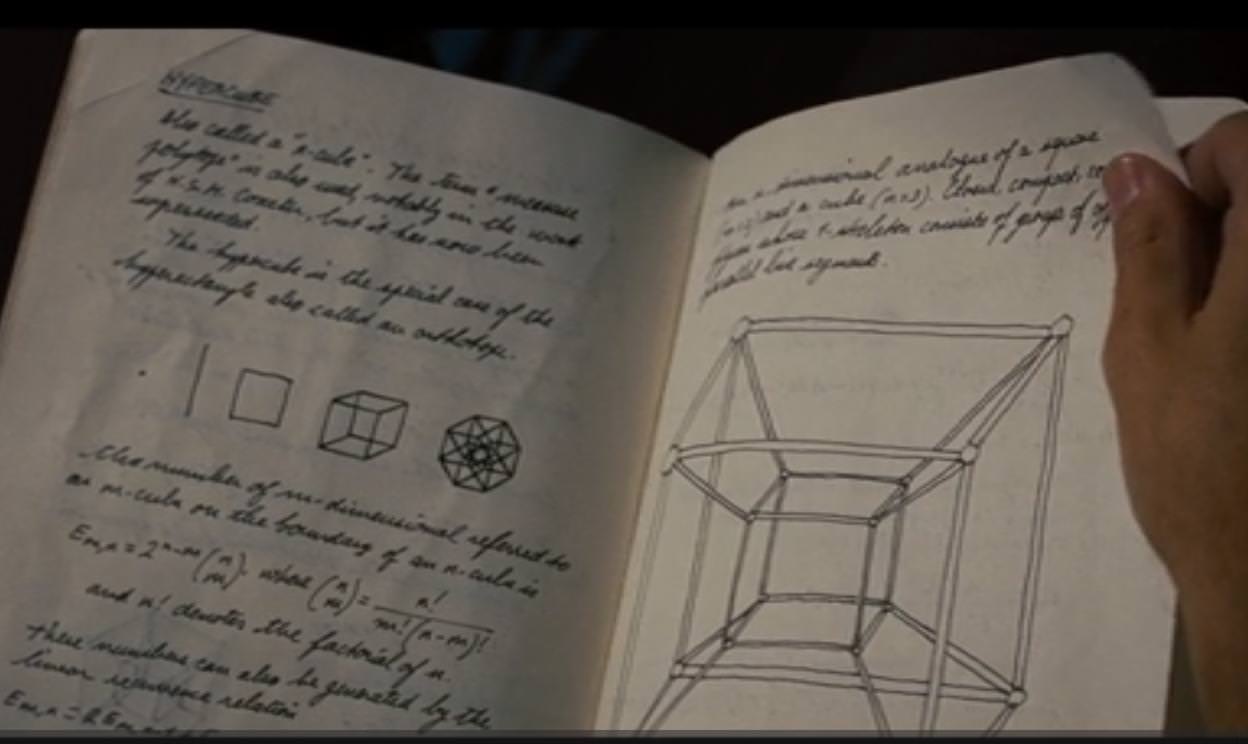 HYPERCUBE
Also called a "n-cube". The term "measure
polytope" is also used, notably in the work
of H.S.M. Coxeter, but it has now been
superseded.
The hypercube is the special case of the
hyperrectangle also called an orthotope.
The number of m-dimensional referred to
an m-cube on the boundary of an n-cube is
Em,n = 2ⁿ⁻ᵐ (n m), where (n m) = n! / m!(n-m)!
and n! denotes the factorial of n.
these numbers can also be generated by the
linear recurrence relation
Em,n = 2Em
dimensional analogue of a square
and a cube (n=3). Closed, compact,
whose 1-skeleton consists of groups of
parallel line segments.